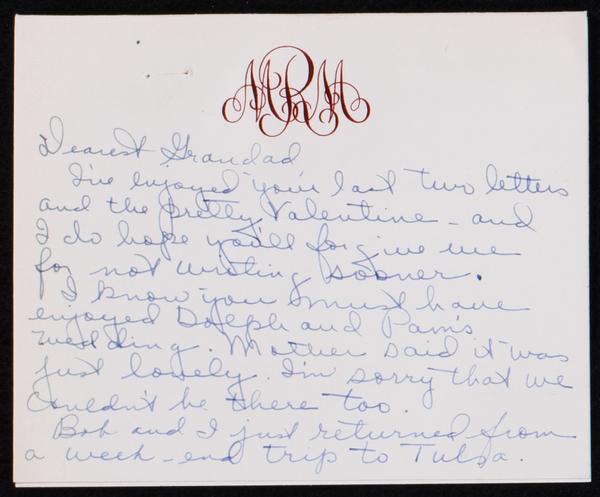 MRM
Dearest Grandad
I've enjoyed your last two letters
and the pretty Valentine - and
I do hope you'll forgive me
for not writing sooner.
I know you must have
enjoyed Dolph and Pam's
wedding. Mother said it was
just lovely. I'm sorry that we
couldn't be there too.
Bob and I just returned from
a week-end trip to Tulsa.